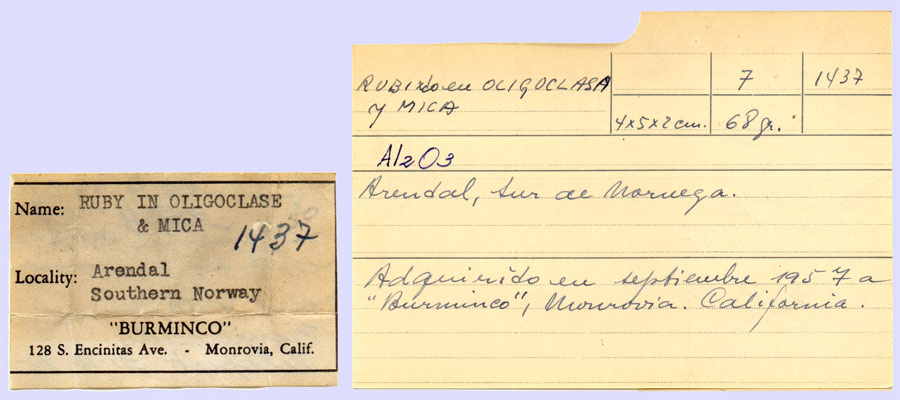 Name: RUBY IN OLIGOCLASE
& MICA
1437
Locality: Arendal
Southern Norway
"BURMINCO"
128 S. Encinitas Ave. - Monrovia, Calif.
RUBI en OLIGOCLASA
y MICA
7
1437
4x5x2cm.
68gr.
Al2O3
Arendal, sur de Noruega.
Adquirido en septiembre 1957 a
"Burminco", Monrovia. California.